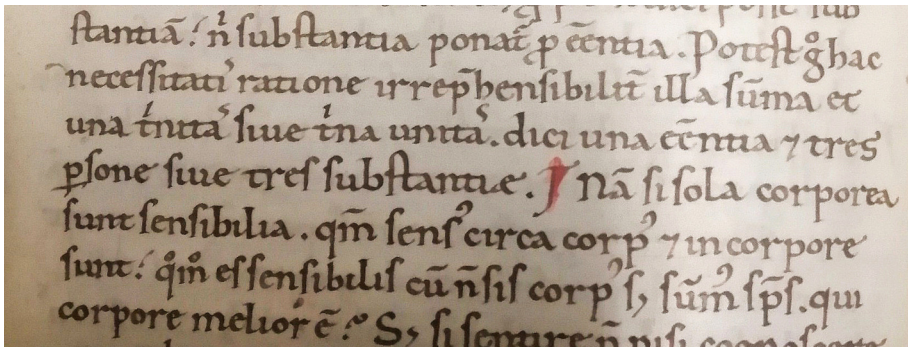 stantiā. n̄ substantia ponat̄ ꝓ eēntia. Potest gͦ hac
necessitatiˢ ratione irrep̄hensibilit̄ illa sūma et
una t̍nitaˢ siue t̍na unitaˢ. dici una eēntia ⁊ tres
ꝑsone siue tres substantie. Nā si sola corporea
sunt sensibilia. qm̄ sensꝰ circa corpꝰ ⁊ in corpore
sunt: qͦmͦ es sensibilis cū n̄ sis corpꝰ sꝫ sūmꝰ sp̄s. qui
corpore melior ē? Sꝫ si sentire n̄ nisi